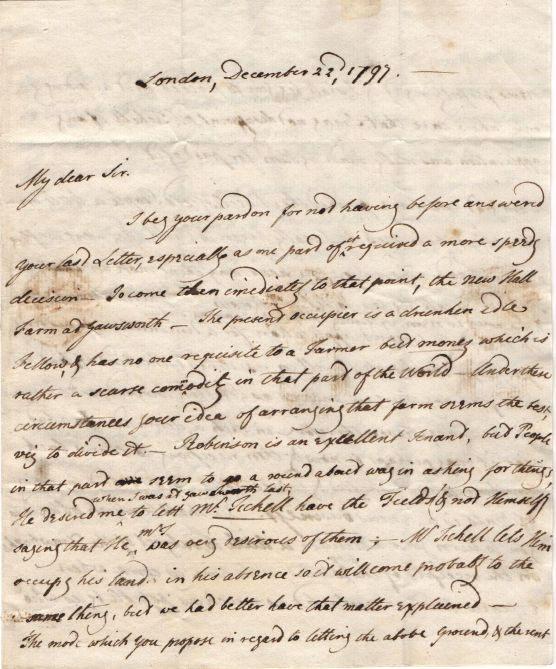 London, December 22d, 1797. —
My dear Sir.
I beg your pardon for not having before answered
your last Letter, especially as one part of it required a more speedy
decesion — To come then imediately to that point, the new Hall
Farm at Gawsworth — The present occupier is a drunken idle
Fellow, & has no one requisite to a Farmer but money which is
rather a scarse comodity in that part of the World — Under these
circumstances your idea of arranging that farm seems the best,
viz to divide it. — Robinson is an Excellent Tenant, but People
in that part seem to go a round about way in asking for things;
when I was at Gawsworth last
He desired me to lett Mr. Sichell have the Fields, & not Himself
saying that He was very desirous of them; — Mr Sichell lets Him
occupy his land in his absence so it will come probably to the
same thing, but we had better have that matter explained —
The mode which you propose in regard to letting the above Ground, & the rent